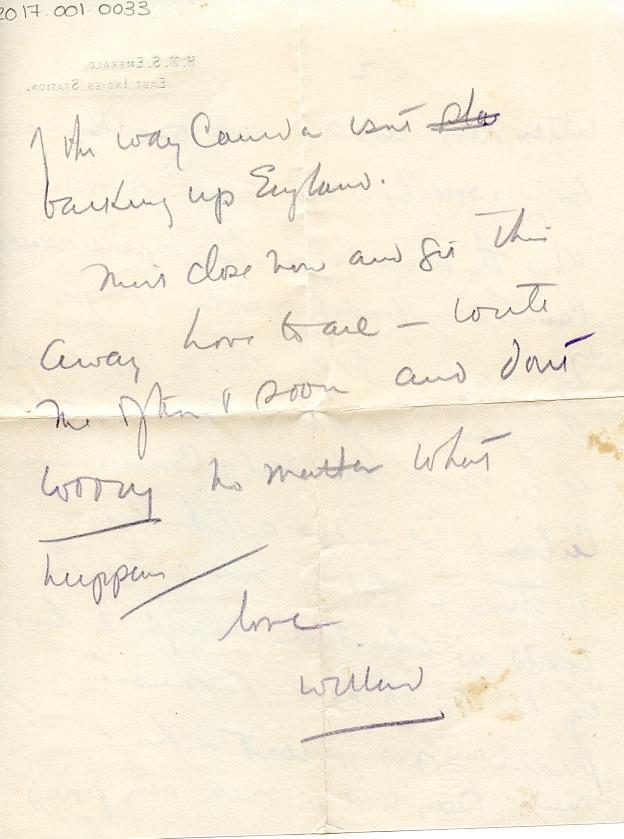 2017.001.0033
H.M.S. EMERALD.
EAST INDIES STATION.
of the way Canada isn't
backing up England.
Must close now and get this
away. Love to all — write
me often & soon and don't
worry no matter what
happens
love
Willard